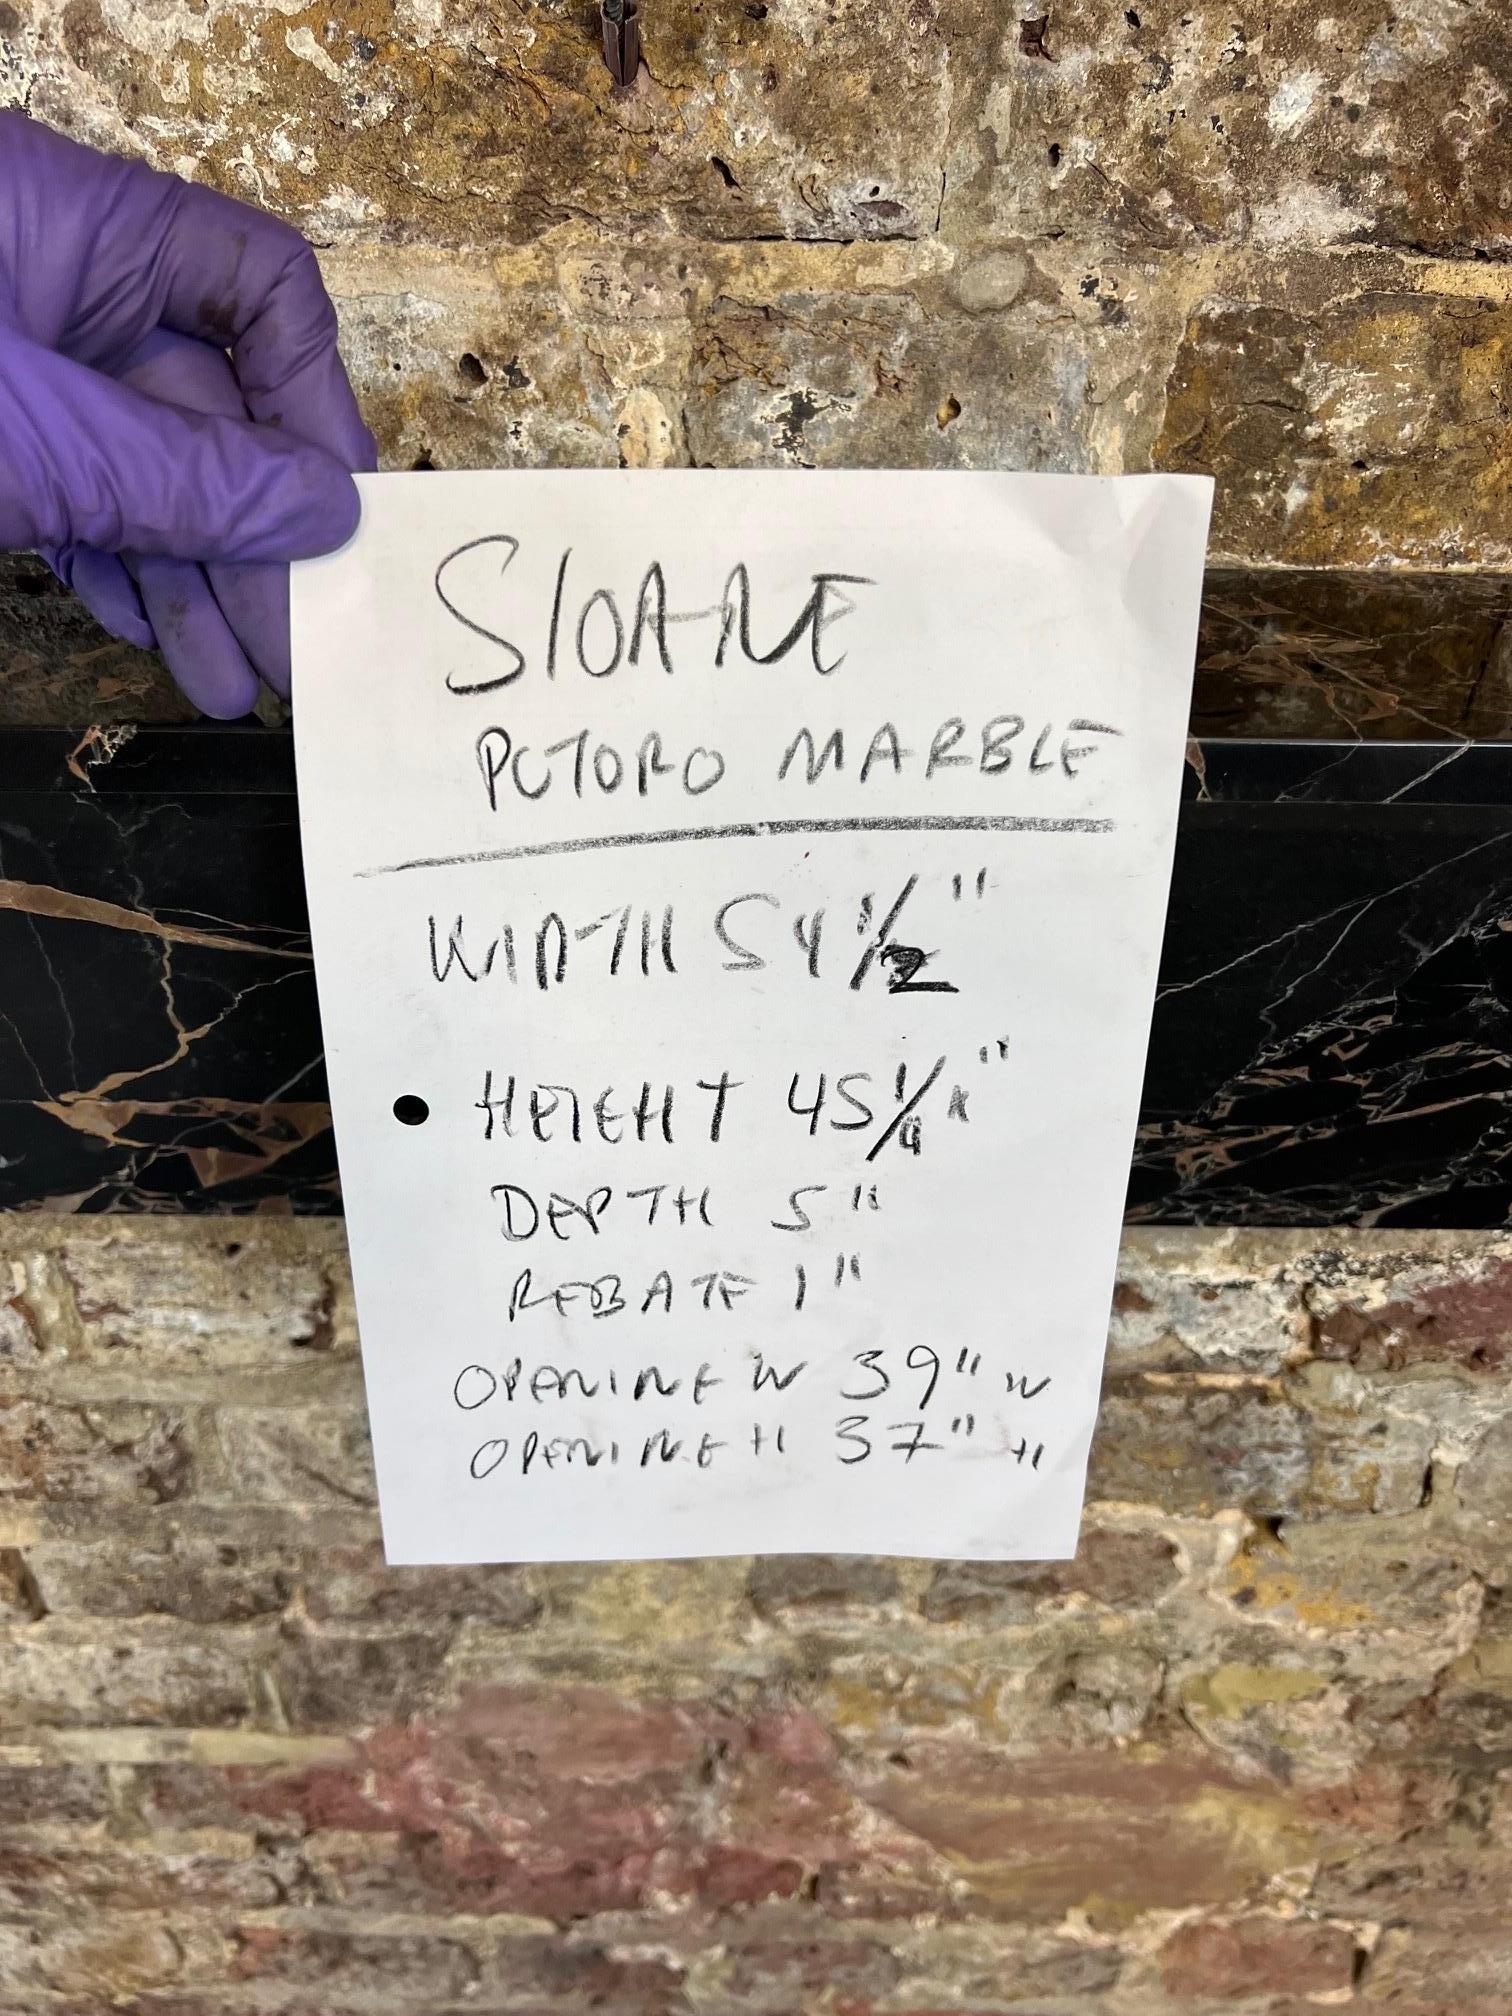 SlOANE
POTORO MARBLE
WIDTH 54 1/2"
HEIGHT 45 1/4"
DEPTH 5"
REBATE 1"
OPENING W 39" W
OPENING H 37" H